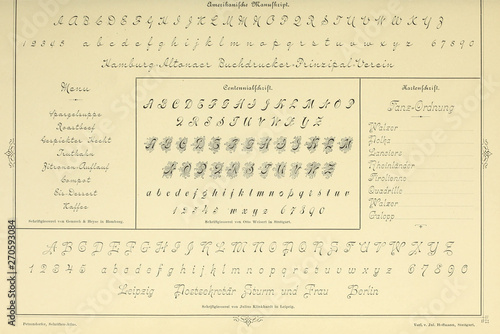 Amerikanische Manuskript.
A B C D E F G H I J K L M N O P Q R S T U V W X Y Z
1 2 3 4 5 a b c d e f g h i j k l m n o p q r s t u v w x y z 6 7 8 9 0
Hamburg-Altonaer Buchdrucker-Prinzipal-Verein
Menu
Spargelsuppe
Roastbeef
Gespickter Hecht
Truthahn
Zitronen-Auflauf
Compot
Eis-Dessert
Kaffee
Schriftgiesserei von Genzsch & Heyse, in Hamburg.
Centennialschrift.
A B C D E F G H I J K L M N O P
Q R S T U V W X Y Z
A B C D E F G H I J K L M N
O P Q R S T U V W X Y Z
a b c d e f g h i j k l m n o p q r s t u v
1 2 3 4 5 w x y z 6 7 8 9 0
Schriftgiesserei von Otto Weisert in Stuttgart.
Kartenschrift.
Tanz-Ordnung
Walzer
Polka
Lanciers
Rheinländer
Tirolienne
Quadrille
Walzer
Galopp
A B C D E F G H I J K L M N O P Q R S T U V W X Y Z
1 2 3 4 5 a b c d e f g h i j k l m n o p q r s t u v w x y z 6 7 8 9 0
Leipzig Postsekretär Sturm und Frau Berlin
Schriftgiesserei von Julius Klinkhardt in Leipzig.
Petzendorfer, Schriften-Atlas.
Verl. v. Jul. Hoffmann, Stuttgart.
Adobe Stock | #270593084